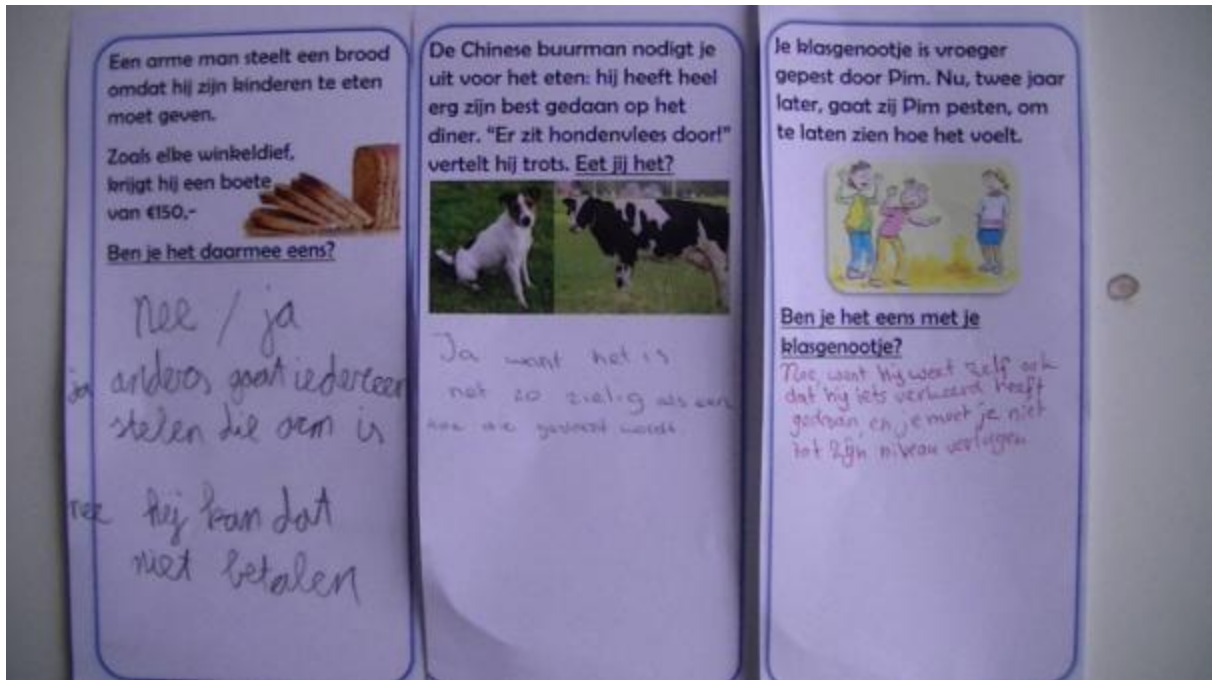 Een arme man steelt een brood
omdat hij zijn kinderen te eten
moet geven.
Zoals elke winkeldief,
krijgt hij een boete
van €150,-
Ben je het daarmee eens?
Nee / ja
ja anders gaat iedereen
stelen die arm is
nee hij kan dat
niet betalen
De Chinese buurman nodigt je
uit voor het eten: hij heeft heel
erg zijn best gedaan op het
diner. “Er zit hondenvlees door!”
vertelt hij trots. Eet jij het?
Ja want het is
net zo zielig als een
koe die geslacht wordt.
Je klasgenootje is vroeger
gepest door Pim. Nu, twee jaar
later, gaat zij Pim pesten, om
te laten zien hoe het voelt.
Ben je het eens met je
klasgenootje?
Nee, want hij weet zelf ook
dat hij iets verkeerd heeft
gedaan en je moet je niet
tot zijn niveau verlagen